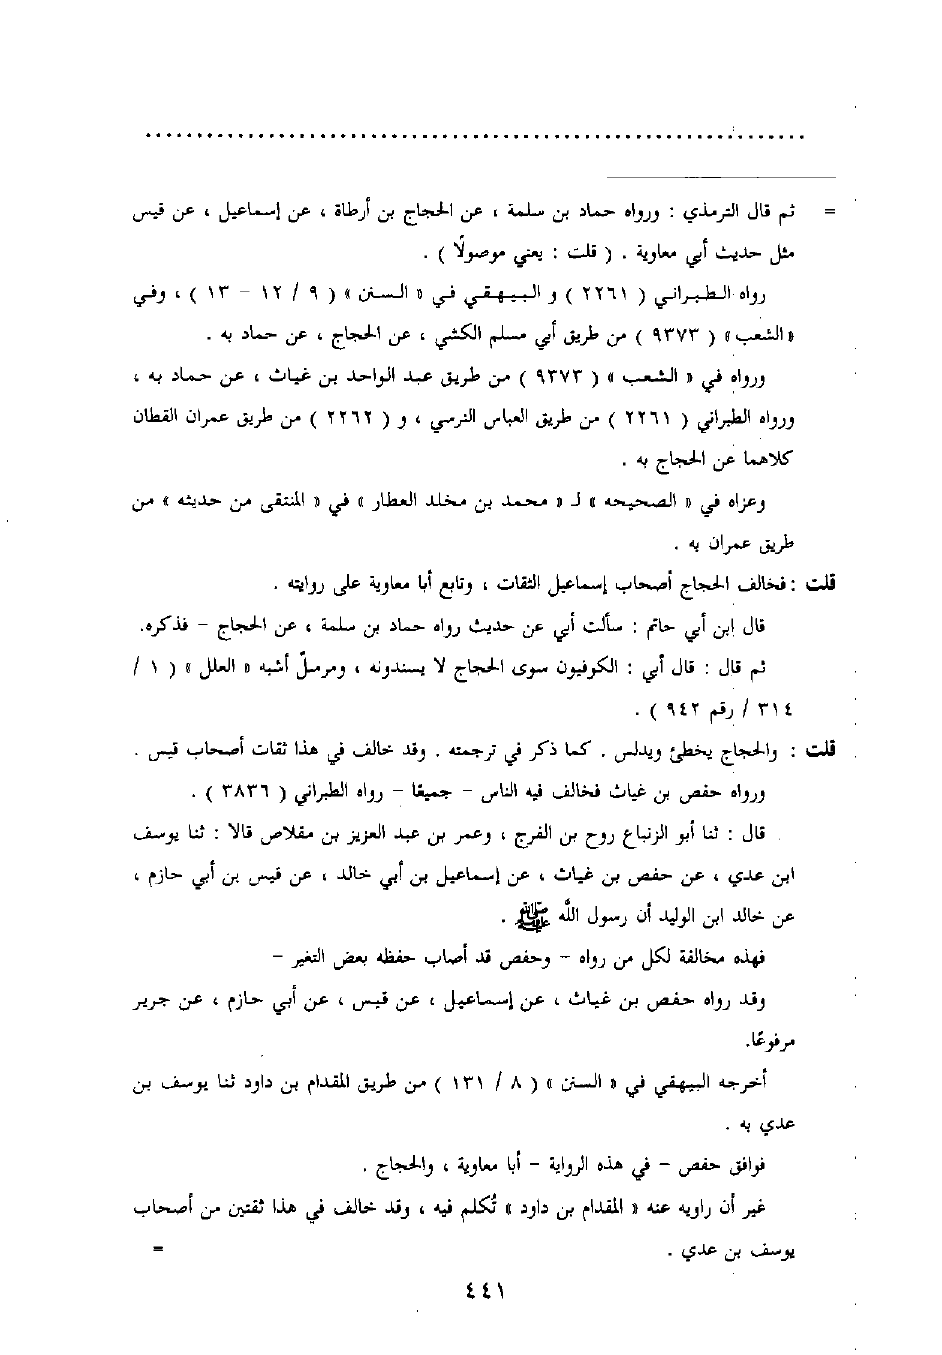 = ثم قال الترمذي : ورواه حماد بن سلمة ، عن الحجاج بن أرطاة ، عن إسماعيل ، عن قيس
مثل حديث أبي معاوية . ( قلت : يعني موصولًا ) .
رواه الطبراني ( ٢٢٦١ ) و البيهقي في « السنن » ( ٩ / ١٢ – ١٣ ) ، وفي
« الشعب » ( ٩٣٧٣ ) من طريق أبي مسلم الكشي ، عن الحجاج ، عن حماد به .
ورواه في « الشعب » ( ٩٣٧٣ ) من طريق عبد الواحد بن غياث ، عن حماد به ،
ورواه الطبراني ( ٢٢٦١ ) من طريق العباس النرسي ، و ( ٢٢٦٢ ) من طريق عمران القطان
كلاهما عن الحجاج به .
وعزاه في « الصحيحه » لـ « محمد بن مخلد العطار » في « المنتقى من حديثه » من
طريق عمران به .
قلت : فخالف الحجاج أصحاب إسماعيل الثقات ، وتابع أبا معاوية على روايته .
قال ابن أبي حاتم : سألت أبي عن حديث رواه حماد بن سلمة ، عن الحجاج – فذكره.
ثم قال : قال أبي : الكوفيون سوى الحجاج لا يسندونه ، ومرسلٌ أشبه « العلل » ( ١ /
٣١٤ / رقم ٩٤٢ ) .
قلت : والحجاج يخطئ ويدلس . كما ذكر في ترجمته . وقد خالف في هذا ثقات أصحاب قيس .
ورواه حفص بن غياث فخالف فيه الناس – جميعًا – رواه الطبراني ( ٣٨٣٦ ) .
قال : ثنا أبو الزنباع روح بن الفرج ، وعمر بن عبد العزيز بن مقلاص قالا : ثنا يوسف
ابن عدي ، عن حفص بن غياث ، عن إسماعيل بن أبي خالد ، عن قيس بن أبي حازم ،
عن خالد ابن الوليد أن رسول اللَّه ﷺ .
فهذه مخالفة لكل من رواه – وحفص قد أصاب حفظه بعض التغير –
وقد رواه حفص بن غياث ، عن إسماعيل ، عن قيس ، عن أبي حازم ، عن جرير
مرفوعًا.
أخرجه البيهقي في « السنن » ( ٨ / ١٣١ ) من طريق المقدام بن داود ثنا يوسف بن
عدي به .
فوافق حفص – في هذه الرواية – أبا معاوية ، والحجاج .
غير أن راويه عنه « المقدام بن داود » تُكلم فيه ، وقد خالف في هذا ثقتين من أصحاب
يوسف بن عدي . =
٤٤١